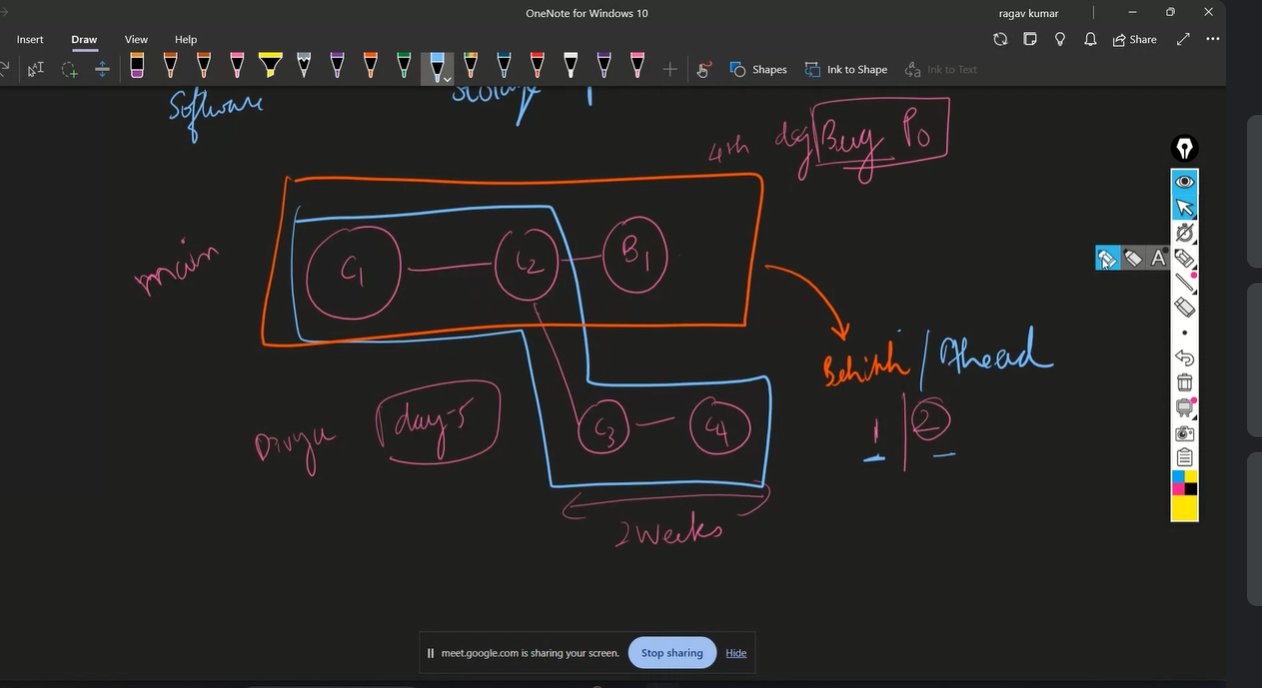 OneNote for Windows 10
ragav kumar
Insert Draw View Help
Share
Shapes Ink to Shape Ink to Text
Software
4th day Bug P0
main
C1 C2 B1
Behinh / Ahead
1 | 2
Divya day-5 C3 C4
2 Weeks
A
meet.google.com is sharing your screen. Stop sharing Hide